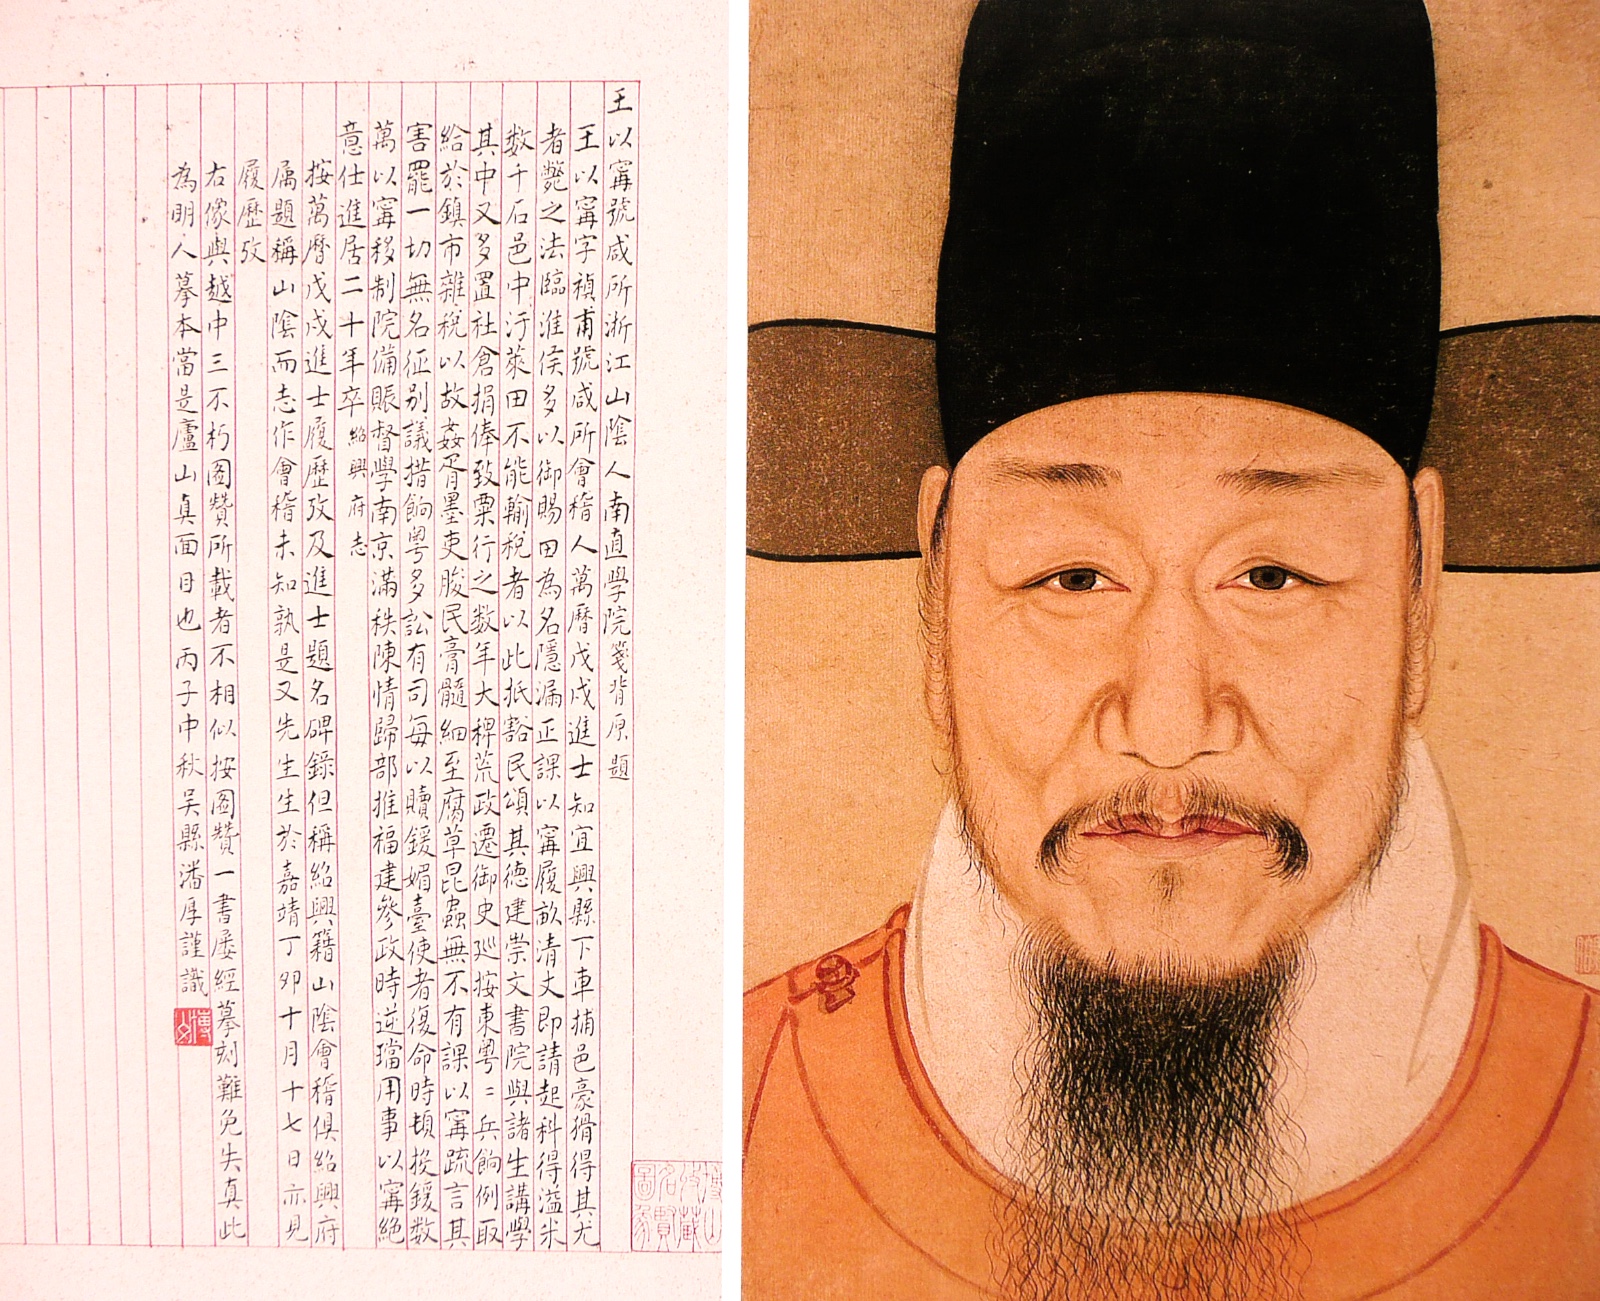 王以寗號咸所浙江山陰人南直學院箋背原題
王以寗字禎甫號咸所會稽人萬曆戊戌進士知宜興縣下車捕邑豪猾得其尤
者斃之法臨淮侯多以御賜田為名隱漏正課以寗履畝清丈即請起科得溢米
数千石邑中汙萊田不能輸稅者以此抵豁民頌其德建崇文書院與諸生講學
其中又多置社倉捐俸致粟行之数年大稗荒政遷御史廵按東粤〻兵餉例取
給於鎮市雜稅以故姦胥墨吏朘民膏髓細至腐草昆蟲無不有課以寗疏言其
害罷一切無名征别議措餉粤多訟有司每以贖鍰媚臺使者復命時頓投鍰数
萬以寗移制院備賑督學南京滿秩陳情歸部推福建參政時逆璫用事以寗絕
意仕進居二十年卒 紹興府志
按萬曆戊戌進士履歷攷及進士題名碑錄但稱紹興籍山陰會稽俱紹興府
属題稱山陰而志作會稽未知孰是又先生生於嘉靖丁卯十月十七日亦見
履歷攷
右像與越中三不朽圖贊所載者不相似按圖贊一書屡經摹刻難免失真此
為明人摹本當是廬山真面目也丙子中秋吴縣潘厚謹識